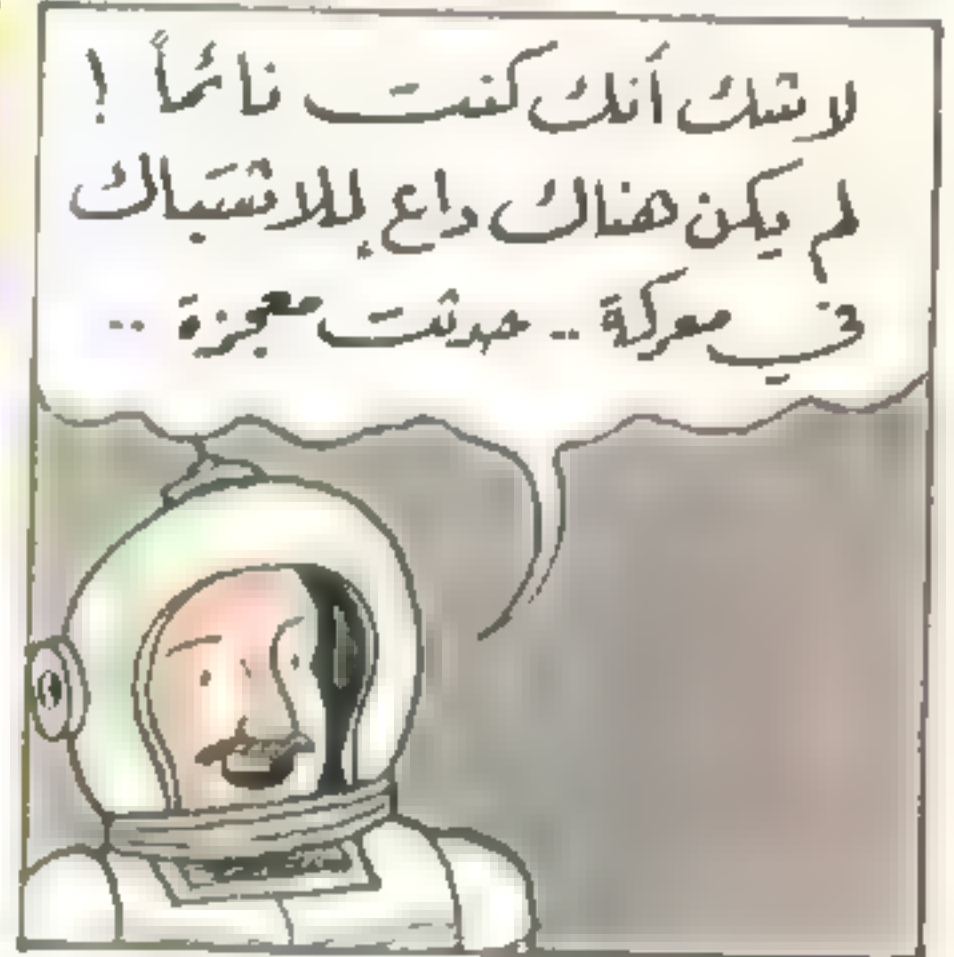 لاشك أنك كنت نائماً !
لم يكن هناك داعٍ للاشتباك
في معركة .. حدثت معجزة ..